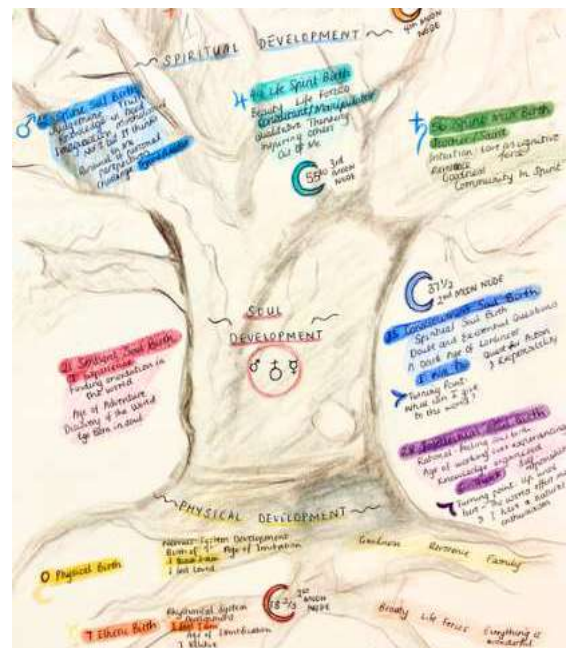 4th MOON
NODE
SPIRITUAL DEVELOPMENT
42 Spirit Self Birth
Judgement Truth
Knowledge in Mind
Imagination
Not I but It thinks
Renewal of personal
perspective
challenge
49 Life Spirit Birth
Beauty Life Forces
Qualitative Thinking
Inspiring others
Out of Me
56 Spirit Man Birth
Intuition: Love as cognitive
force
Reverence
Goodness
Community in Spirit
55 3rd
MOON
NODE
37 1/2
2nd MOON NODE
SOUL
DEVELOPMENT
21 Sentient Soul Birth
I Experience
Finding orientation in
the World
Age of Adventure
Discovery of the World
Ego Born in soul
35 Consciousness Soul Birth
Spiritual Soul Birth
Doubt and Existential Questions
A Dark Age of Loneliness
I Am
Quest for Action
& Responsibility
Turning Point:
What can I give
to the world?
28 Intellectual Soul Birth
Rational-Feeling soul birth
Age of working over experiencing
Knowledge organised
I Think
Turning point: Up until
here - The world offers me
I have a natural
enthusiasm
PHYSICAL DEVELOPMENT
0 Physical Birth
Nervous-System Development
Birth of "I" Age of Imitation
I am
I am Loved
Goodness Reverence Family
7 Etheric Birth
Rhythmical System
Development
I feel I am
Age of Identification
I Relate
18 2/3 1st
MOON
NODE
Beauty Life Forces Everything is
wonderful